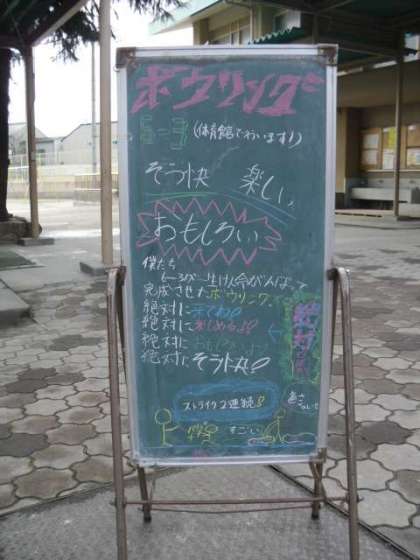 ボウリング
6-3 (体育館でやいます!)
そう快 楽しい。
おもしろい
僕たち
6-3が一生けん命がんばって
完成させたボウリング。
絶対に来てね!
絶対に楽しめるよ!
絶対におもしろいよ!
絶対にそう快!
絶対
ストライク2連続!
すごい